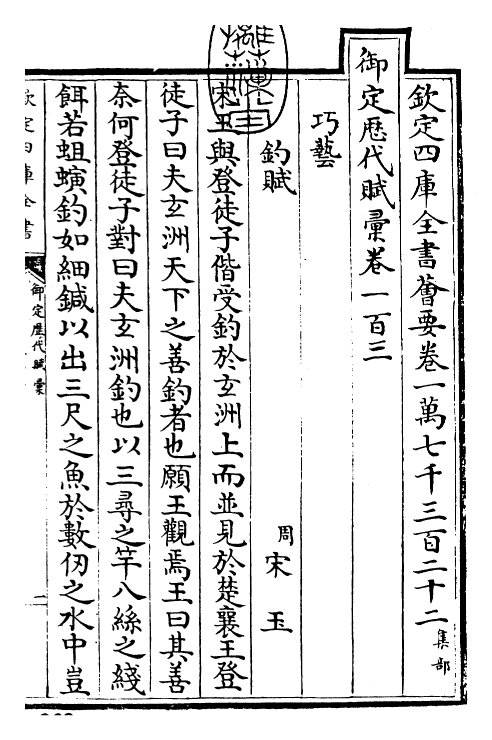 欽定四庫全書薈要卷一萬七千三百二十二 集部
御定歷代賦彙卷一百三
巧藝
釣賦
周 宋玉
宋玉與登徒子偕受釣於玄洲上而並見於楚襄王登
徒子曰夫玄洲天下之善釣者也願王觀焉王曰其善
奈何登徒子對曰夫玄洲釣也以三尋之竿八絲之綫
餌若蛆螾釣如細鍼以出三尺之魚於數仞之水中豈
欽定四庫全書
御定歷代賦彙
一